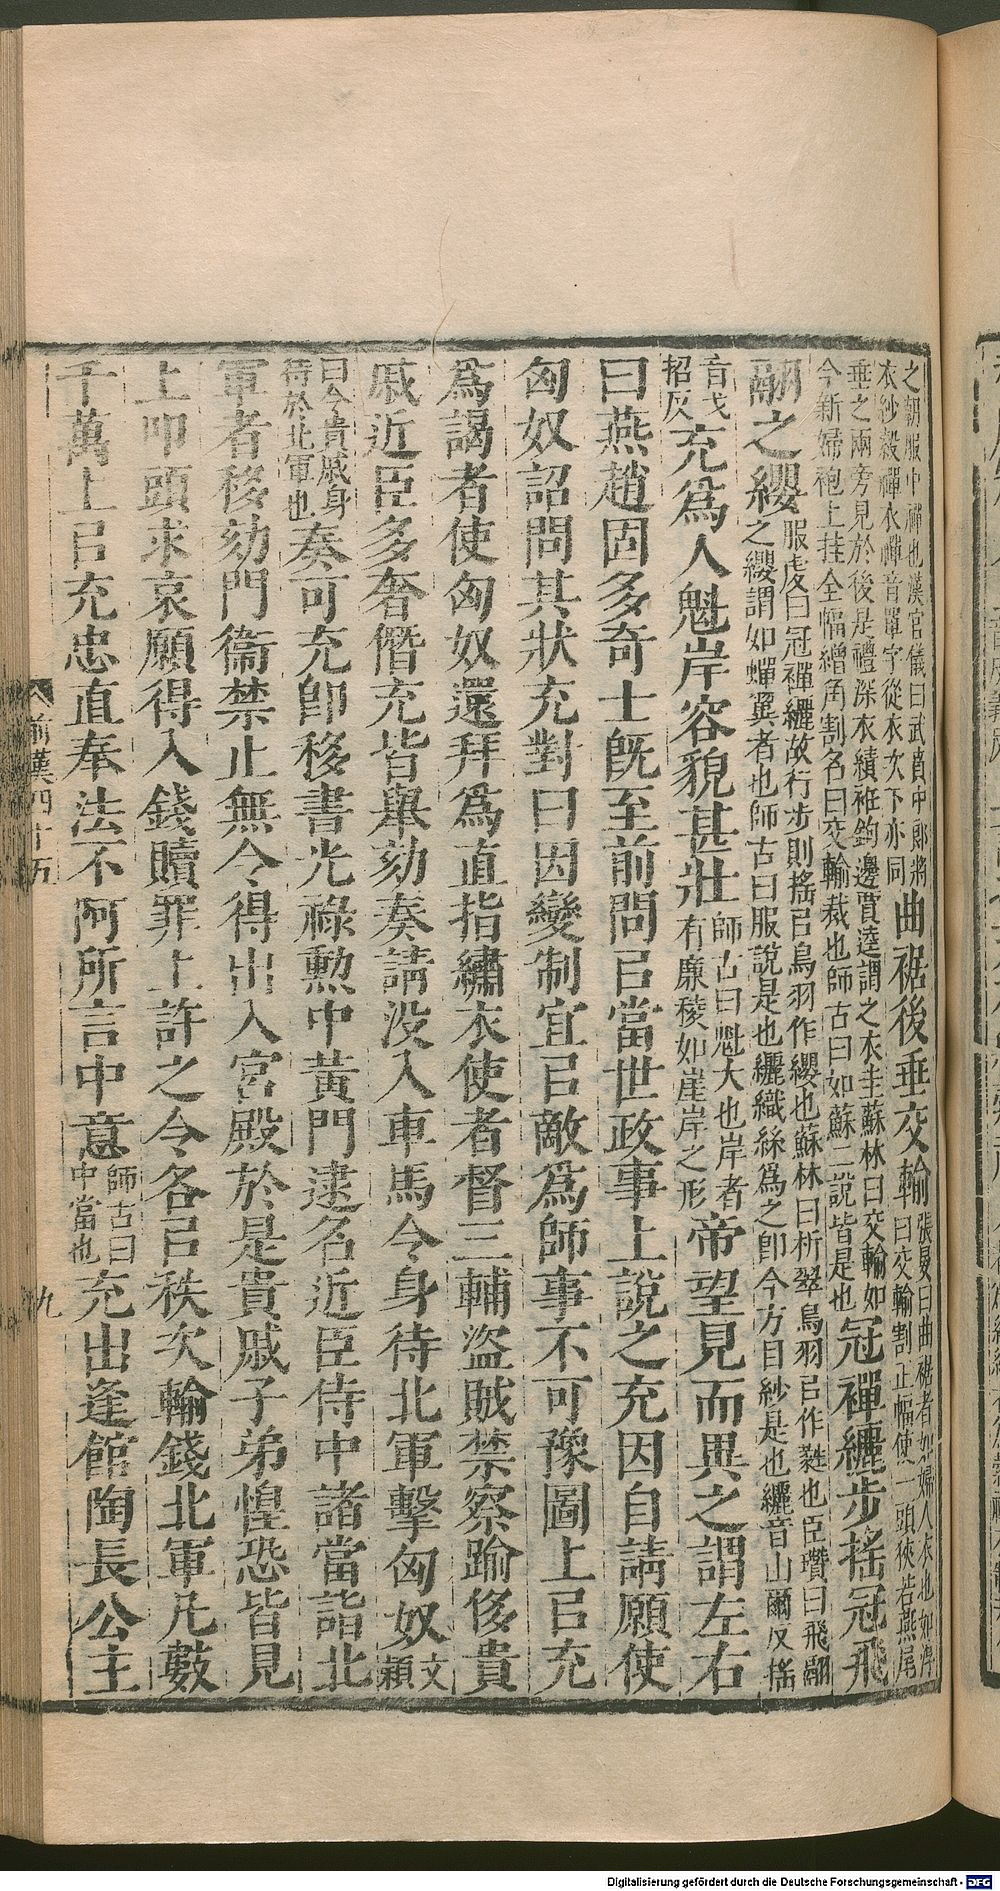 之朝服中襌也漢官儀曰武賁中郎將衣紗縠襌衣襌音單字從衣次下亦同曲裾後垂交輸張晏曰曲裾者如婦人衣也如淳曰交輸割正幅使一頭狹若燕尾
垂之兩旁見於後是禮深衣續衽鉤邊賈逵謂之衣圭蘇林曰交輸如今新婦袍上挂全幅繒角割名曰交輸裁也師古曰如蘇二說皆是也冠襌纚步搖冠飛
翮之纓服虔曰冠襌纚故行步則搖㠯鳥羽作纓也蘇林曰析翠鳥羽㠯作蕤也臣瓚曰飛翮之纓謂如蟬翼者也師古曰服說是也纚織絲爲之卽今方目紗是也纚音山爾反搖
音弋招反充爲人魁岸容貌甚壯師古曰魁大也岸者有廉稜如崖岸之形帝望見而異之謂左右
曰燕趙固多奇士旣至前問㠯當世政事上說之充因自請願使
匈奴詔問其狀充對曰因變制宜㠯敵爲師事不可豫圖上㠯充
爲謁者使匈奴還拜爲直指繡衣使者督三輔盜賊禁察踰侈貴
戚近臣多奢僭充皆舉劾奏請没入車馬令身待北軍擊匈奴文穎
曰令貴戚身待於北軍也奏可充卽移書光祿勲中黃門逮名近臣侍中諸當詣北
軍者移劾門衞禁止無令得出入宮殿於是貴戚子弟惶恐皆見
上叩頭求哀願得入錢贖罪上許之令各㠯秩次輸錢北軍凡數
千萬上㠯充忠直奉法不阿所言中意師古曰中當也充出逢館陶長公主
前漢四十五
九
Digitalisierung gefördert durch die Deutsche Forschungsgemeinschaft - DFG